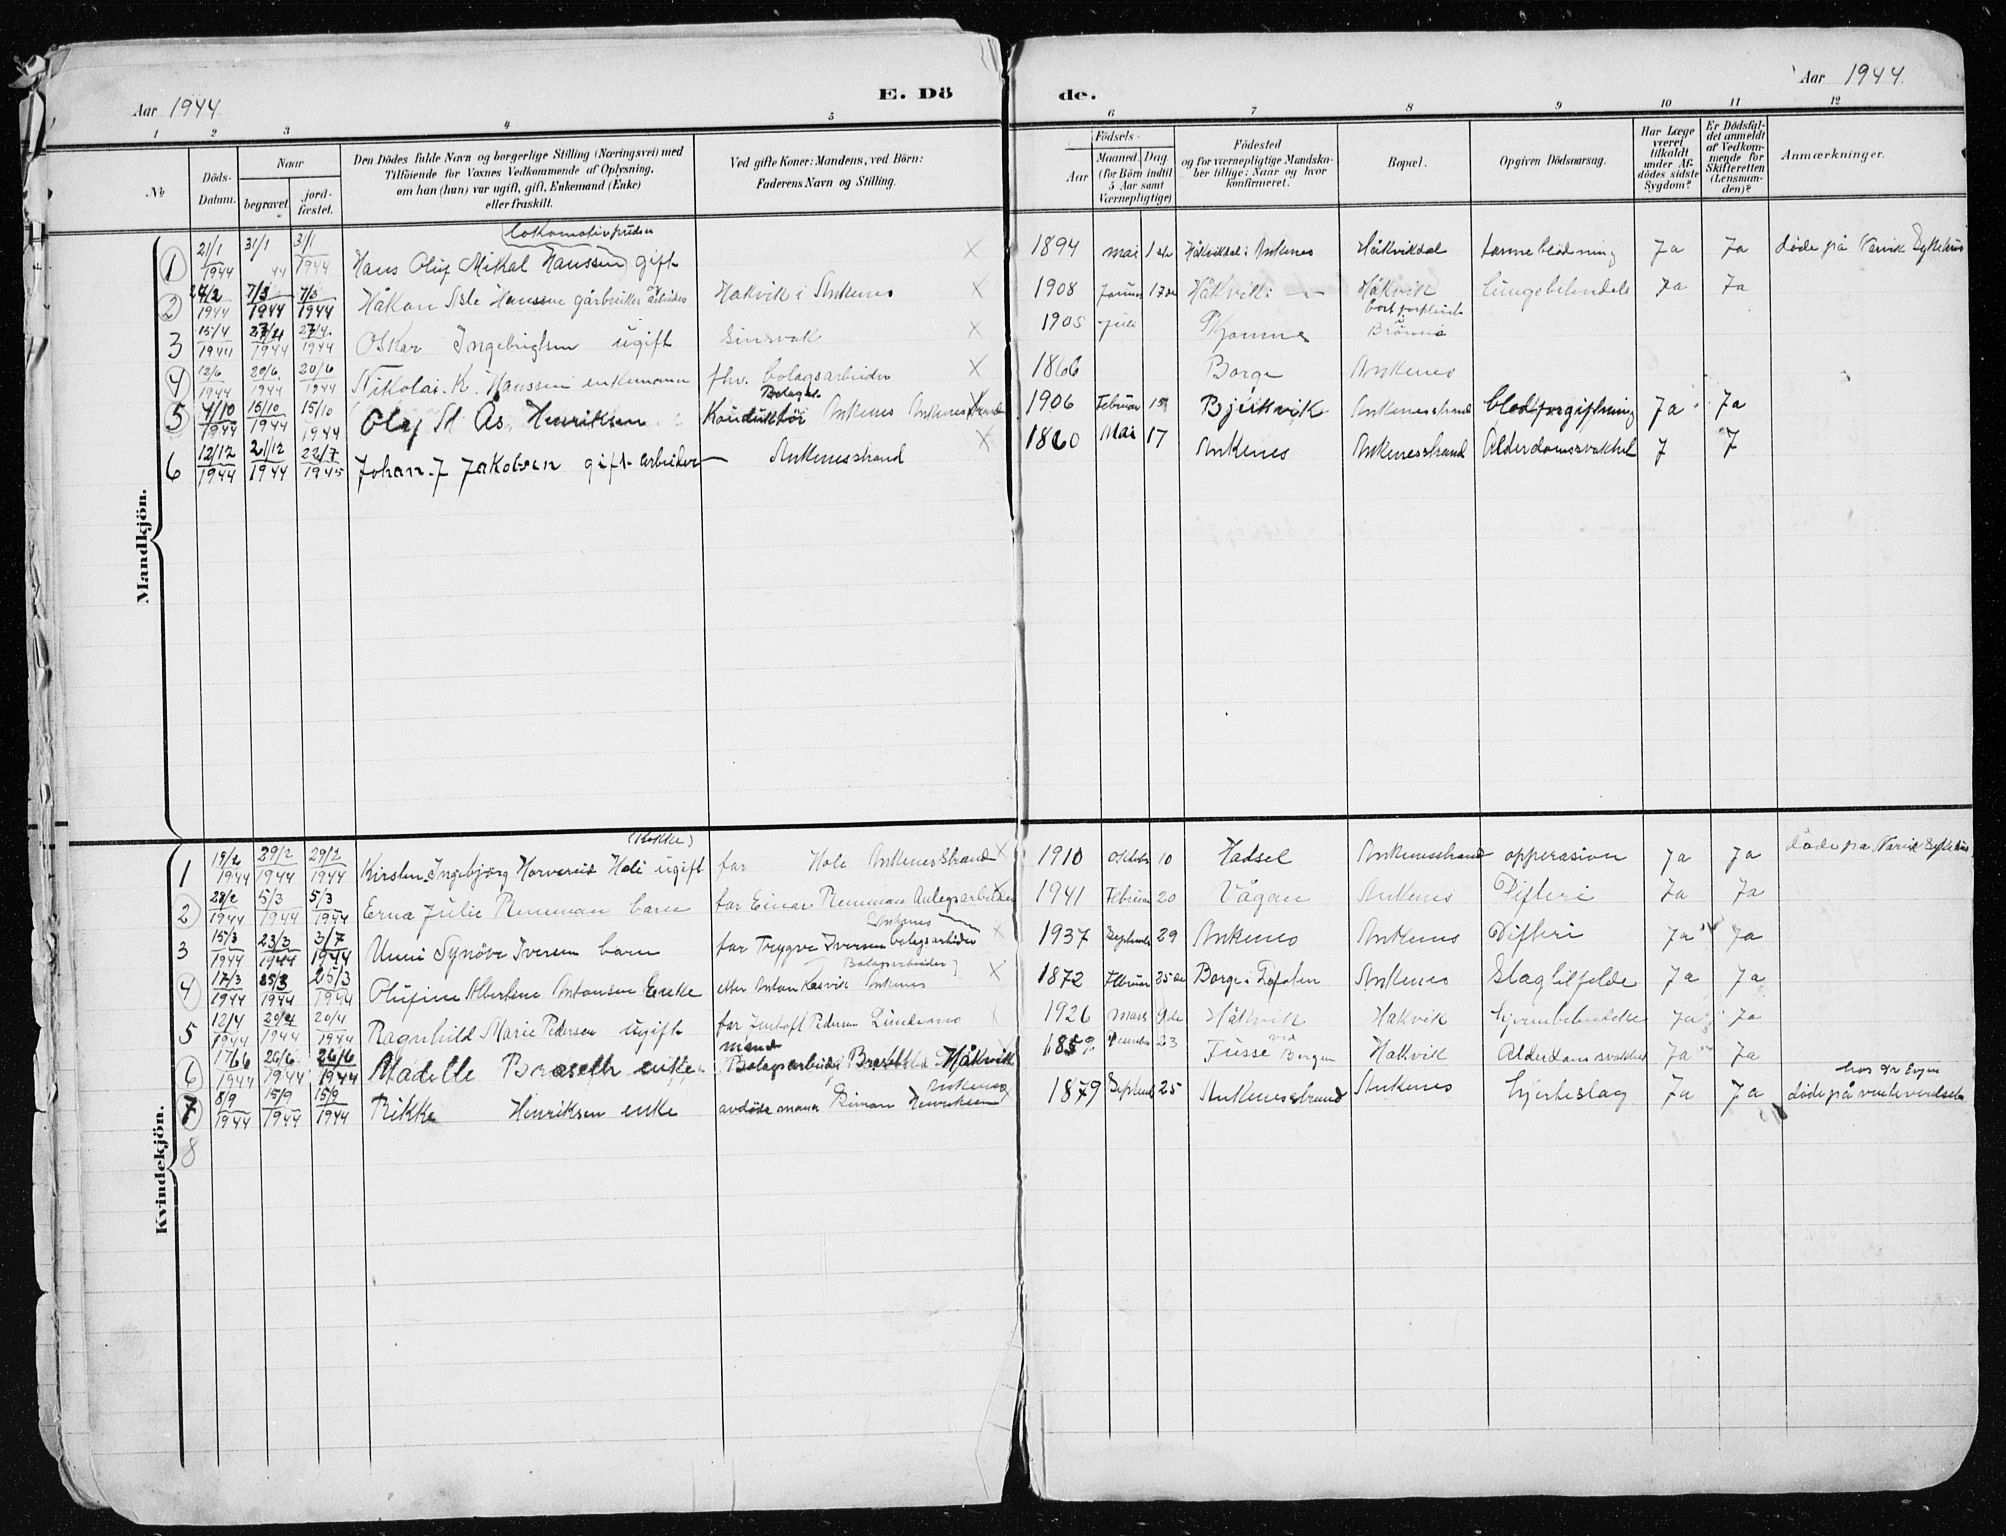 Aar 1944
E. Dö
de.
Aar 1944
1 2 3 4 5 6 7 8 9 10 11 12
No
Döds-Datum.
Naar
begravet.
jord-fæstet.
Den Dödes fulde Navn og borgerlige Stilling (Næringsvei) med
Tilföiende for Voxnes Vedkommende af Oplysning,
om han (hun) var ugift, gift, Enkemand (Enke)
eller fraskilt.
Ved gifte Koner: Mandens, ved Börn:
Faderens Navn og Stilling.
Födsels-
Aar
Maaned. Dag
(for Börn indtil
5 Aar samt
Værnepligtige)
Födested
og for værnepligtige Mandska-
ber tillige: Naar og hvor
konfirmeret.
Bopæl.
Opgiven Dödsaarsag.
Har Læge
været
tilkaldt
under Af-
dödes sidste
Sygdom?
Er Dödsfal-
det anmeldt
af Vedkom-
mende for
Skifteretten
(Lensman-
den)?
Anmærkninger.
Mandkjön.
1 21/1 1944 31/1 44 31/1 1944 Hans Oluf Mikal Hanssen gift X 1894 mai 1ste Håkvikdal i Ankenes Håkvikdal tarmeblødning Ja Ja døde på Narvik Sykehus
2 24/2 1944 7/3 1944 7/3 1944 Håkon Hansen gårbruker arbeider Håkvik i Ankenes X 1908 Januar 17de Håkvik i Håkvik lungebetendels Ja Ja
3 15/4 1944 27/4 1944 27/4 1944 Oskar Ingebrigtsen ugift X 1905 juli Brönnö
4 12/6 1944 20/6 1944 20/6 1944 Nikolai K. Hanssen enkemann fhv. bolagsarbeider X 1866 Borge Ankenes
5 4/10 1944 16/10 1944 15/10 1944 Olaf St As. Henriksen Konduktör Ankenes Ankenesstrand 1906 Februar 15 Bjerkvik Ankenesstrand blodforgiftning Ja Ja
6 12/12 1944 21/12 1944 22/7 1945 Johan J Jakobsen gift arbeider Ankenesstrand X 1860 Mai 17 Ankenes Ankenesstrand Alderdomssvakhet J J
Kvindekjön.
1 19/2 1944 29/2 1944 29/2 1944 Kirsten Ingebjörg Hole ugift (Kokke) far Hole Ankenesstrand X 1910 Oktober 10 Hadsel Ankenesstrand opperasion Ja Ja døde på Narvik Sykehus
2 28/2 1944 5/3 1944 5/3 1944 Erna Julie Remman barn far Einar Remman Anlegsarbeider 1941 Februar 20 Vågan Ankenes Difteri Ja Ja
3 15/3 1944 23/3 1944 3/7 1944 Unni Synöve Iversen barn far Trygve Iversen bolagsarbeider Ankenes X 1937 September 29 Ankenes Ankenes Difteri Ja Ja
4 17/3 1944 25/3 1944 25/3 1944 Olufine Albertine Antonsen Enke etter Anton Ankenes Bolagsarbeider X 1872 Februar 25de Borge i Lofoten Ankenes Slagtilfelde Ja Ja
5 12/4 1944 20/4 1944 20/4 1944 Ragnhild Marie Pedersen ugift far Pedersen 1926 Mars 9de Håkvik Håkvik hjernebetendelse Ja Ja
6 17/6 1944 26/6 1944 26/6 1944 Madelle Braseth enke mand Bolagsarbeider Braseth Håkvik 1859 23 Fusse ved Bergen Håkvik Alderdomssvakhet Ja Ja
7 8/9 1944 15/9 1944 15/9 1944 Rikke Henriksen enke avdöde mann Henriksen Ankenes 1879 September 25 Ankenesstrand Ankenes hjerteslag Ja Ja døde på
8